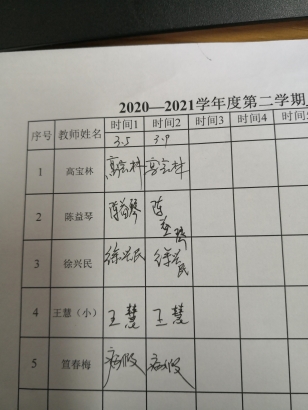 2020—2021学年度第二学期
序号 教师姓名 时间1 时间2 时间3 时间4 时间5
3.5 3.9
1 高宝林 高宝林 高宝林
2 陈益琴 陈益琴 陈益琴
3 徐兴民 徐兴民 徐兴民
4 王慧（小） 王慧 王慧
5 笪春梅 病假 病假